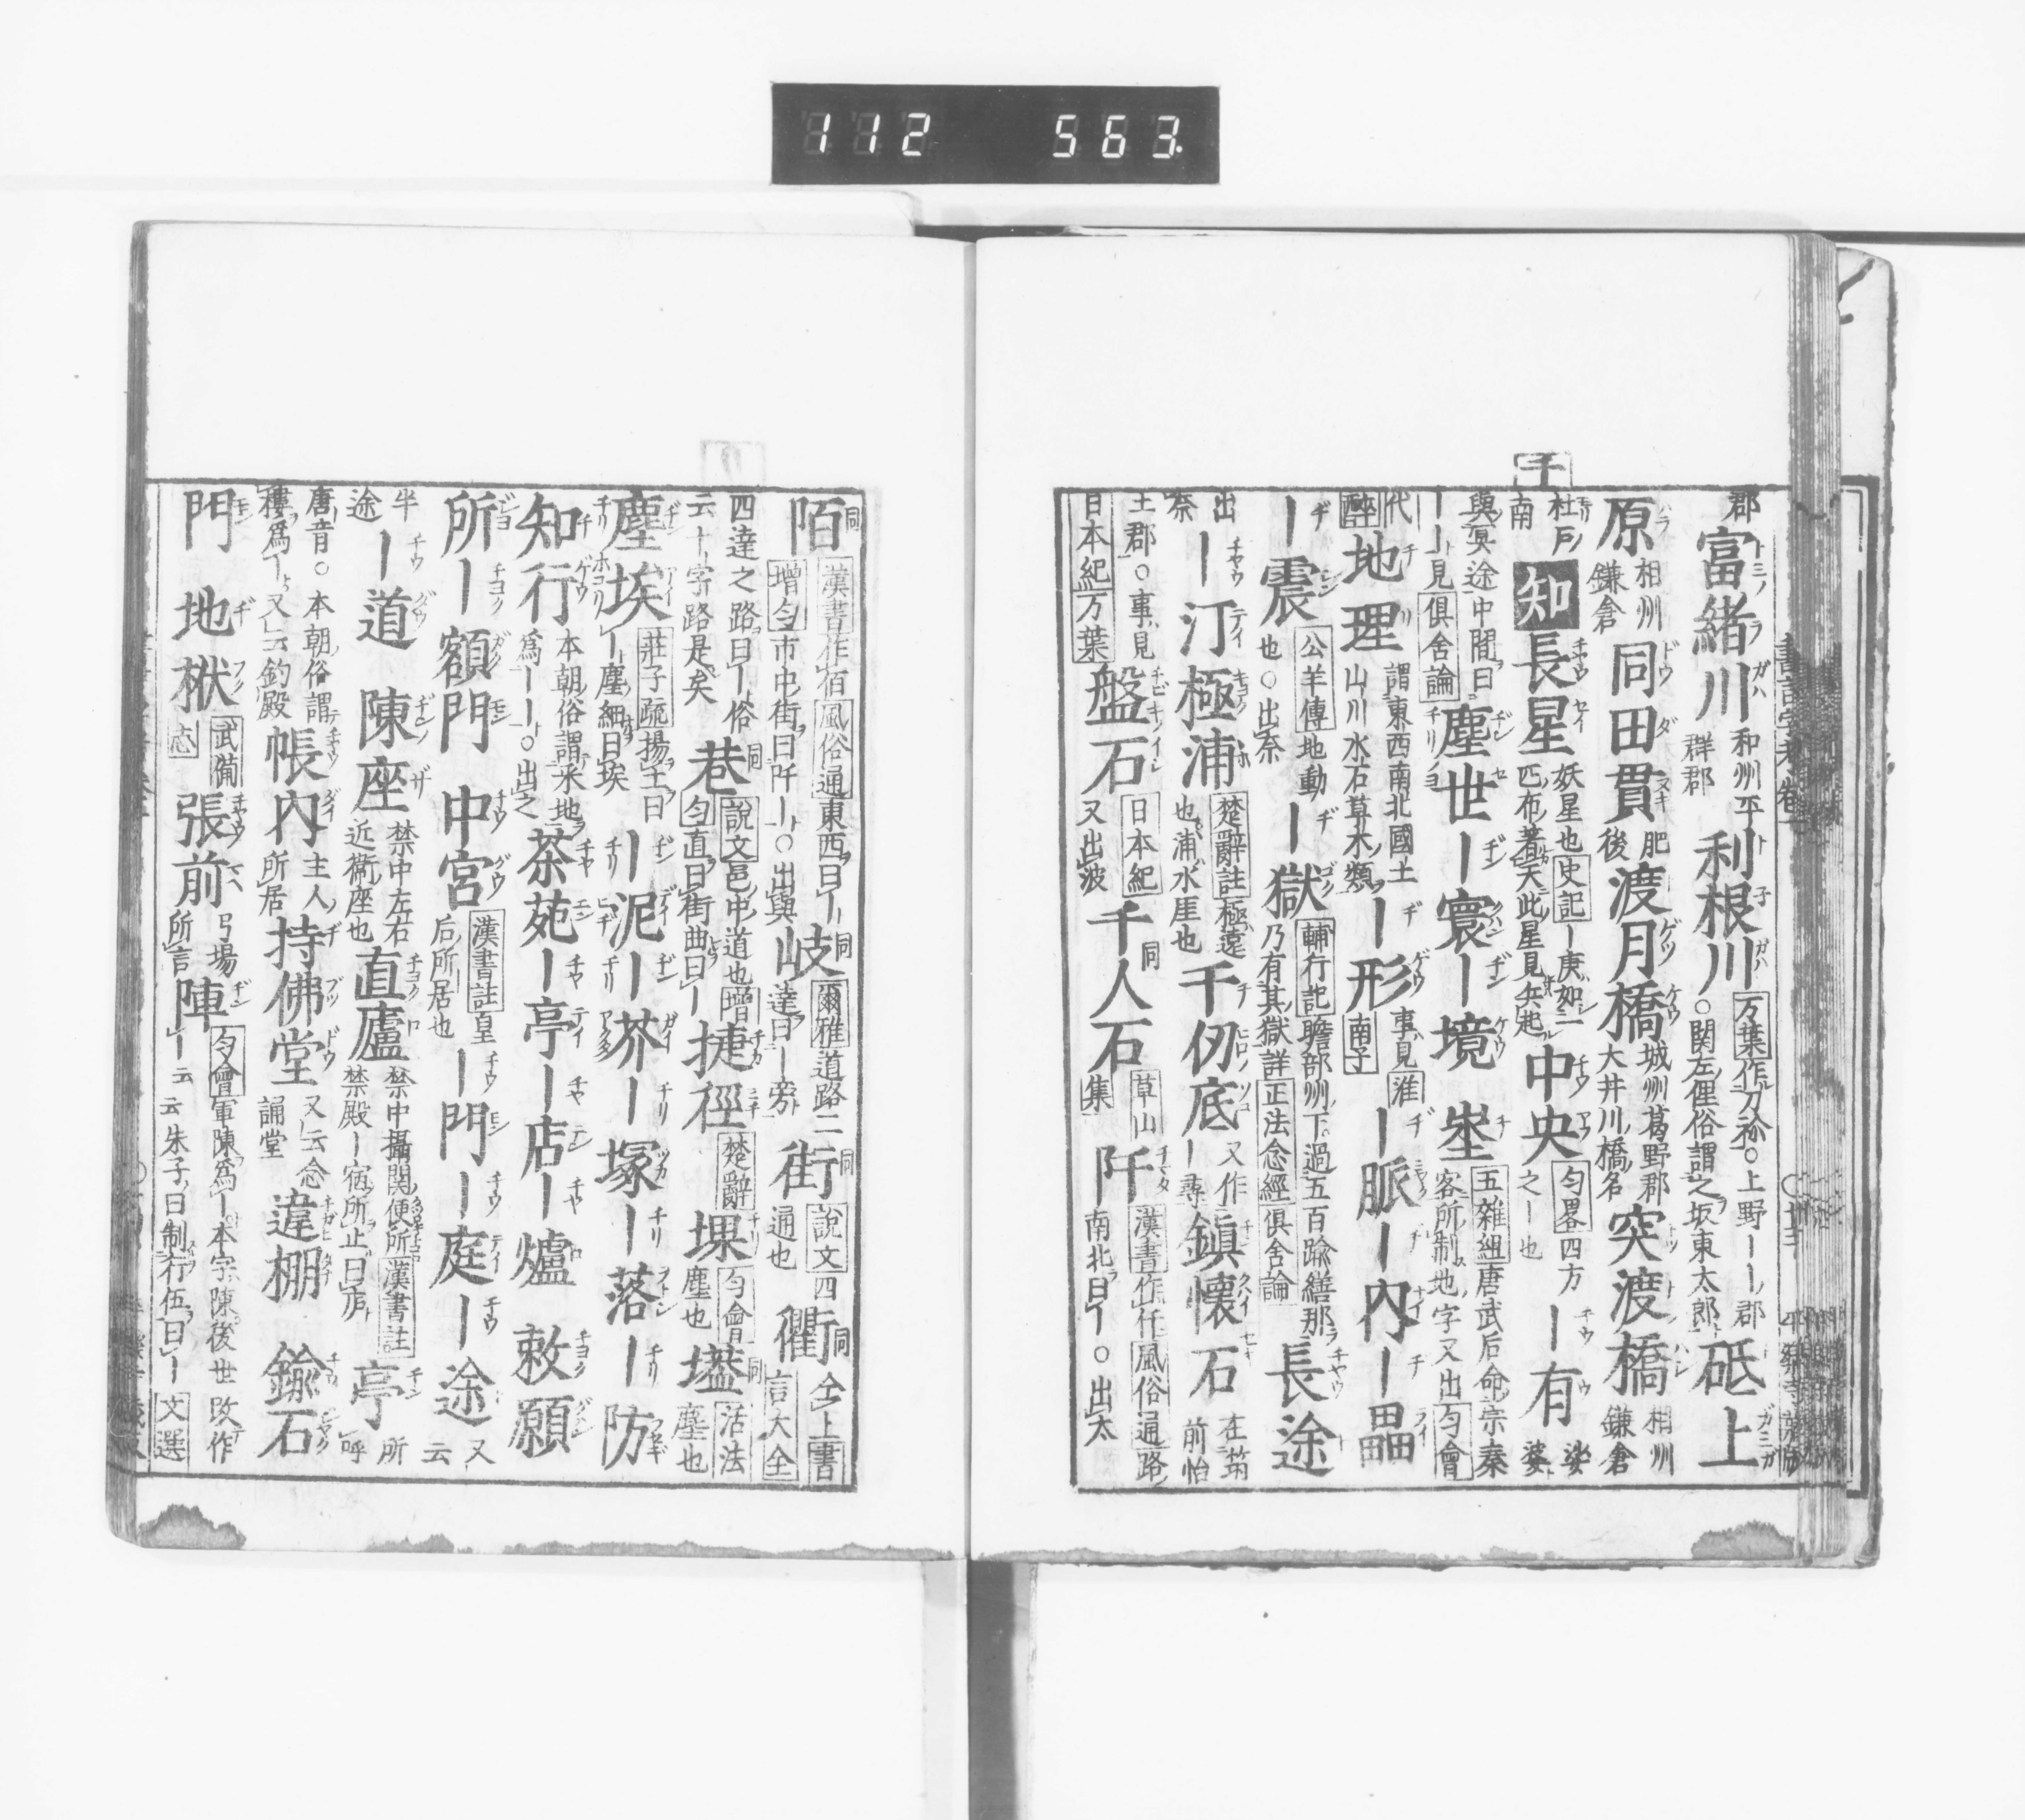 112 563.
千
郡 富緒川 和州平群郡 利根川 万葉作刀祢。○上野ーー郡○関左俚俗謂之坂東太郎 砥上
原 相州鎌倉 同田貫 肥後 渡月橋 城州葛野郡大井川橋名 突渡橋 相州鎌倉
杜戸南 知 長星 妖星也史記ー庚如一匹布著天此星見兵起 中央 匀畧四方之ー也 ー有 娑婆
與冥途中間曰ーー見俱舍論 塵世 ー寰 ー境 埊 五雜組唐武后命宗秦客所制地字又出匀會
代醉 地理 謂東西南北國土山川水石草木類 ー形 事見淮南子 ー脈 ー內 ー畾
ー震 公羊傳地動也○出奈 ー獄 輔行記贍部州下過五百踰繕那乃有其獄詳正法念經俱舍論 長途
出奈 ー汀 極浦 楚辭註極遠也浦水厓也 千仞底 又作ー尋 鎮懷石 在筑前怡
土郡○事見日本紀万葉 盤石 日本紀又出波 千人石 草山集 阡 漢書作仟風俗通路南北曰ー○出太
陌 漢書作佰風俗通東西曰ー增匀市中街曰阡ー○出與 岐 爾雅道路二達曰ー旁 街 說文四通也 衢 仝上書言大全
四達之路曰ー俗云十字路是矣 巷 說文邑中道也增匀直曰街曲曰ー 捷徑 楚辭 堁 匀會塵也 壒 活法塵也
塵埃 莊子疏揚土曰ー塵細曰埃 ー泥 ー芥 ー塚 ー落 ー防
知行 本朝俗謂釆地爲ーー○出之 茶苑 ー亭 ー店 ー爐 敕願
所 ー額門 中宮 漢書註皇后所居也 ー門 ー庭 ー途 又云
半途 ー道 陳座 禁中左右近衞座也 直廬 禁中攝関便所漢書註禁殿ー宿所止曰庐 亭 所呼
唐音○本朝俗謂樓爲ー又云釣殿 帳內 主人所居 持佛堂 又云念誦堂 違棚 鍮石
門 地栿 武備志 張前 弓場所言 陣 匀會軍陳爲ー本字陳後世改作ー云云朱子曰制行伍曰ー文選